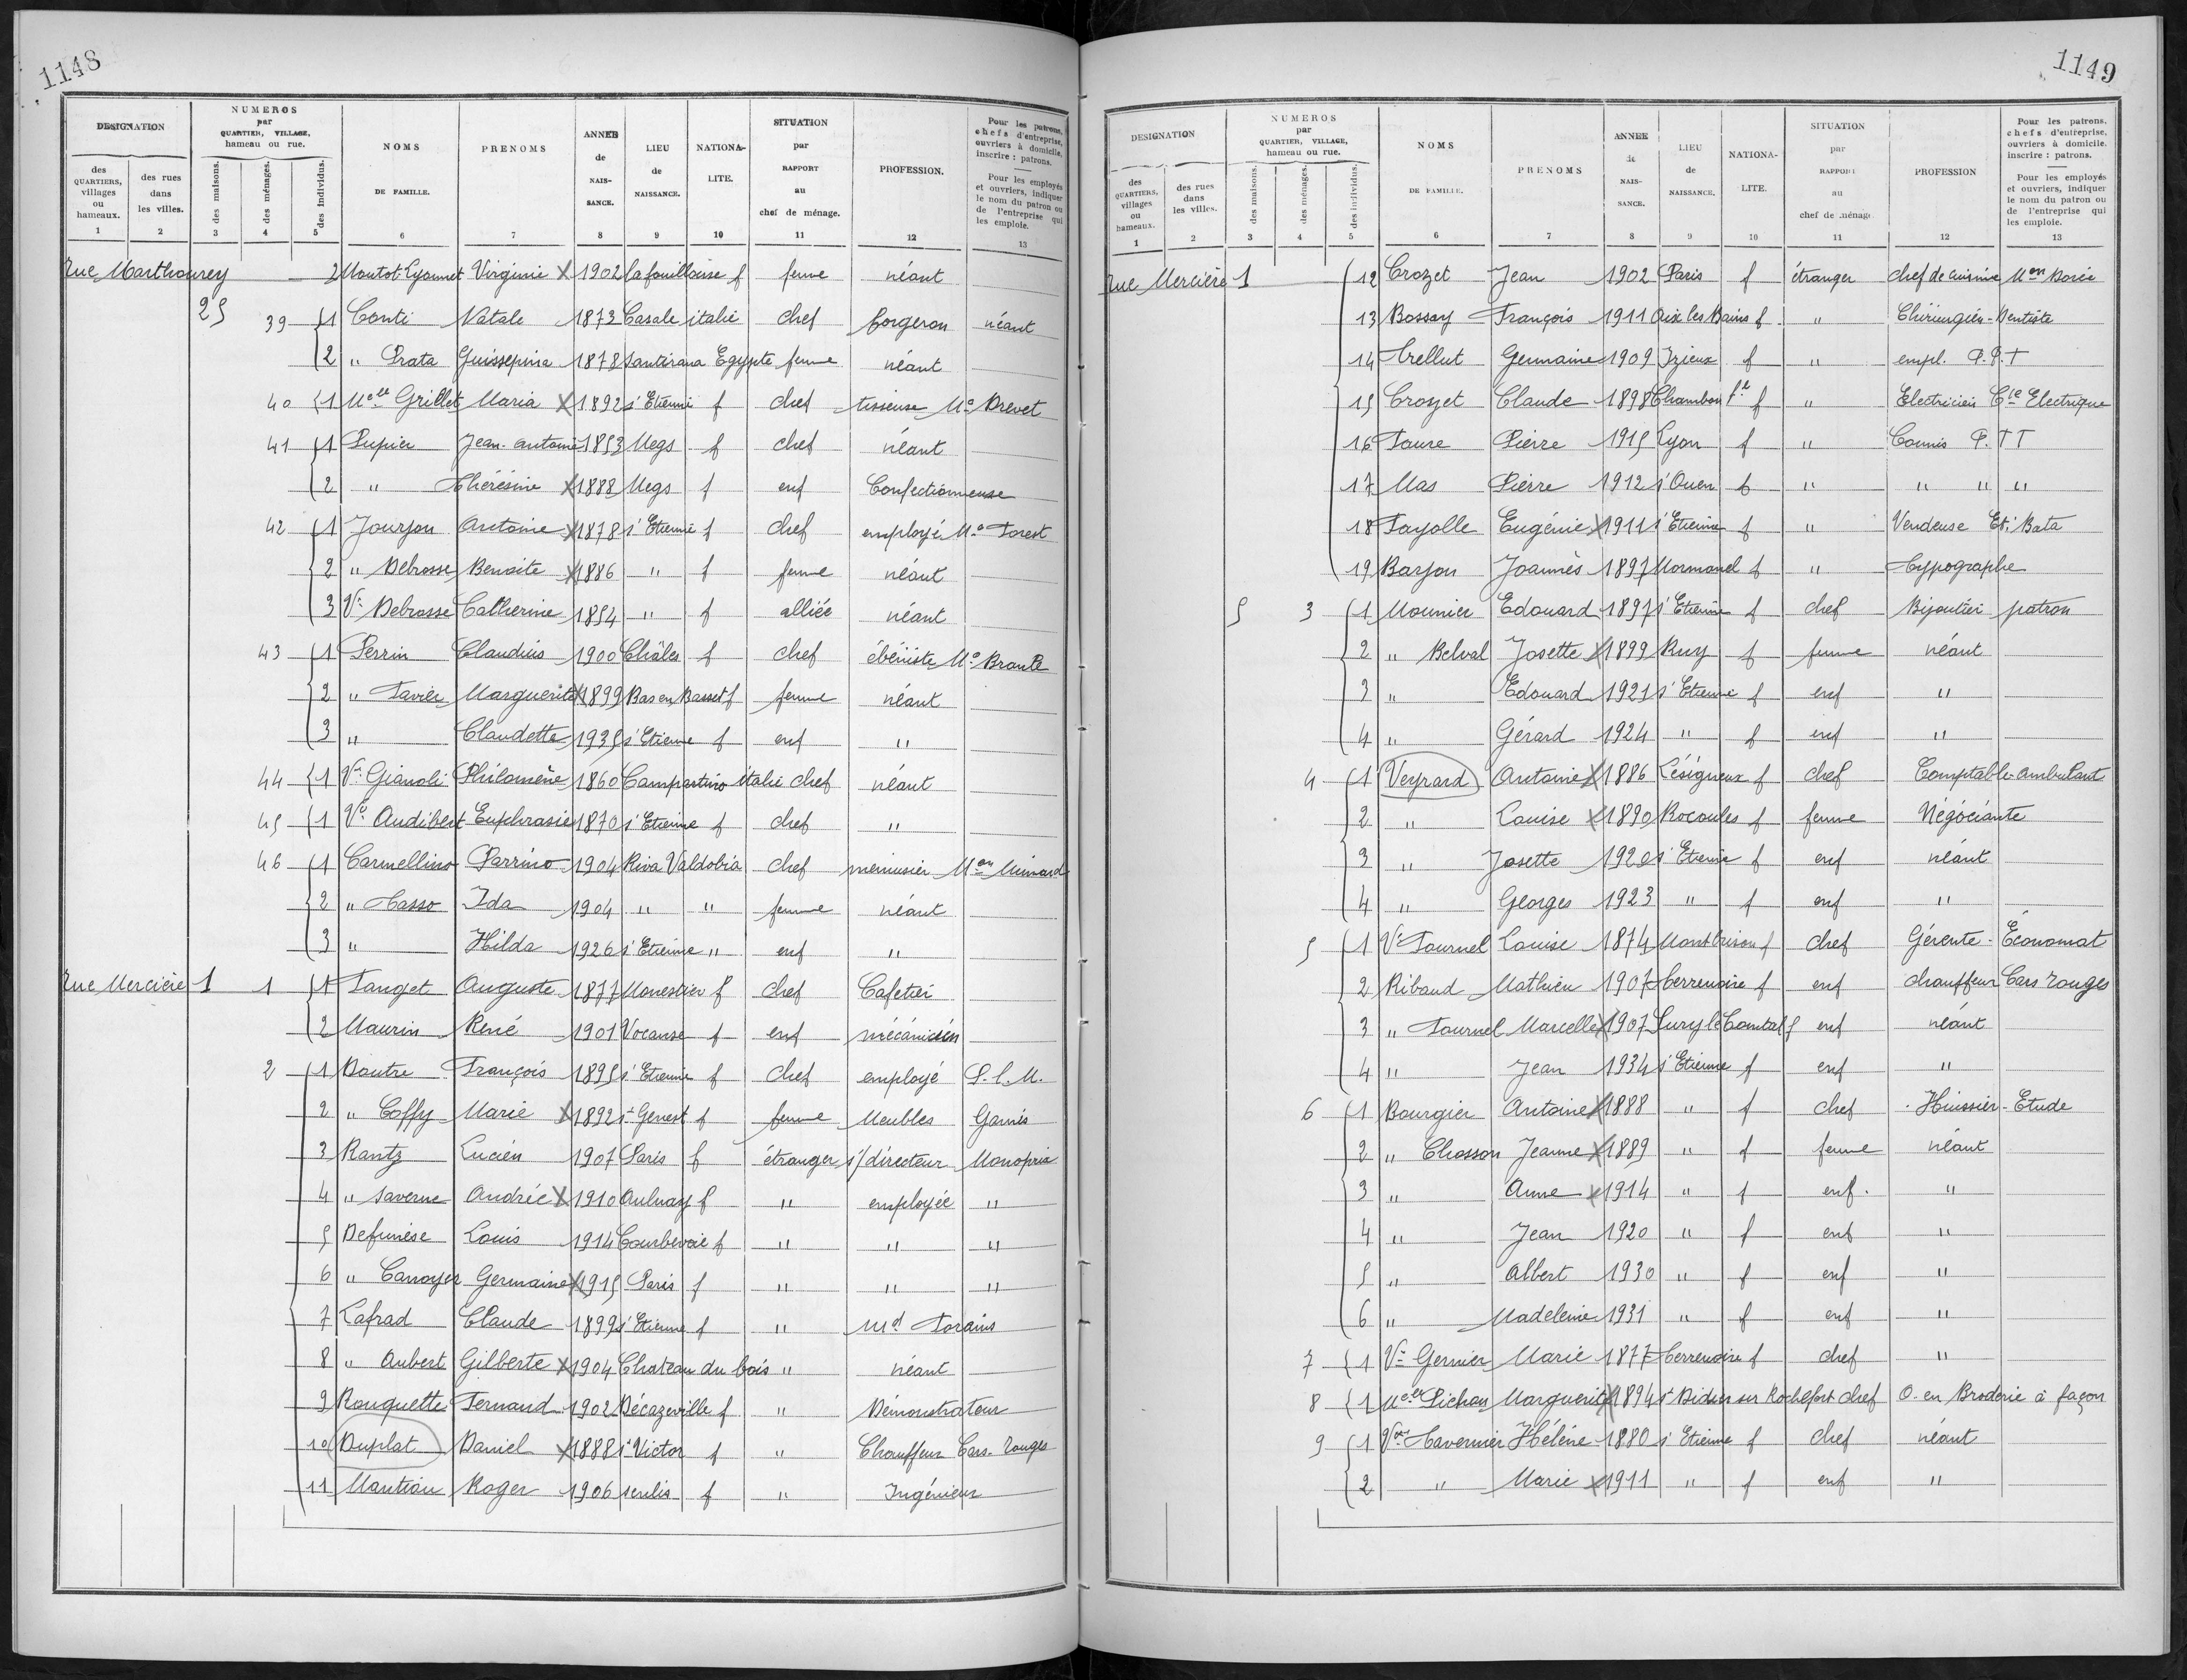 1148
DESIGNATION
des QUARTIERS, villages ou hameaux.
des rues dans les villes.
NUMEROS par QUARTIER, VILLAGE, hameau ou rue.
des maisons.
des ménages.
des individus.
NOMS DE FAMILLE.
PRENOMS
ANNEE de NAISSANCE.
LIEU de NAISSANCE.
NATIONALITE.
SITUATION par RAPPORT au chef de ménage.
PROFESSION.
Pour les patrons, chefs d'entreprise, ouvriers à domicile, inscrire : patrons.
Pour les employés et ouvriers, indiquer le nom du patron ou de l'entreprise qui les emploie.
1 2 3 4 5 6 7 8 9 10 11 12 13
rue Marthourey 2 Montot Lyonnet Virginie X 1902 la fouillouse f femme néant
25 39 1 Conti Natale 1873 Casale italie chef forgeron néant
2 " Prata Guissepina 1878 Santirana Egypte femme néant
40 1 Melle Grillet Maria X 1892 st Etienne f chef tisseuse Mon Drevet
41 1 Pupier Jean-antoine 1853 Megs f chef néant
2 " Thérésine X 1888 Megs f enf Confectionneuse
42 1 Jourjon Antoine X 1878 st Etienne f chef employé Mon Forest
2 " Debrosse Benoite X 1886 " f femme néant
3 Ve Debrosse Catherine 1854 " f alliée néant
43 1 Perrin Claudius 1900 Châles f chef ébéniste Mon
2 " Favier Marguerite X 1899 Bas en Basset f femme néant
3 " Claudette 1935 st Etienne f enf "
44 1 Ve Gianoli Philomène 1860 italie chef néant
45 1 Ve Audibert Euphrasie 1870 st Etienne f chef "
46 1 Carmellino Parrino 1904 Riva Valdobia chef menuisier Mon Minard
2 " Tasso Ida 1904 " " femme néant
3 " Hilda 1926 st Etienne " enf "
rue Mercière 1 1 1 Fanget Auguste 1877 Monestier f chef Cafetier
2 Maurin René 1901 Vocance f enf mécanicien
2 1 Doutre François 1895 st Etienne f chef employé P.L.M.
2 " Coffy Marie X 1892 st Genest f femme Meubles Garnis
3 Rantz Lucien 1907 Paris f étranger s/directeur Monoprix
4 " Saverne Andrée X 1910 Aulnay f " employée "
5 Defunèse Louis 1914 Courbevoie f " " "
6 " Carroyer Germaine X 1915 Paris f " " "
7 Lafrad Claude 1899 st Etienne f " Md Forains
8 " Aubert Gilberte X 1904 Chateau du bois " néant
9 Rouquette Fernand 1902 Décazeville f " Démonstrateur
10 Duplat Daniel X 1888 st Victor f " Chauffeur Cars-rouges
11 Mantion Roger 1906 senlis f " Ingénieur
1149
DESIGNATION
des QUARTIERS, villages ou hameaux.
des rues dans les villes.
NUMEROS par QUARTIER, VILLAGE, hameau ou rue.
des maisons.
des ménages.
des individus.
NOMS DE FAMILLE.
PRENOMS
ANNEE de NAISSANCE.
LIEU de NAISSANCE.
NATIONALITE.
SITUATION par RAPPORT au chef de ménage
PROFESSION
Pour les patrons, chefs d'entreprise, ouvriers à domicile, inscrire : patrons.
Pour les employés et ouvriers, indiquer le nom du patron ou de l'entreprise qui les emploie.
1 2 3 4 5 6 7 8 9 10 11 12 13
rue Mercière 1 12 Crozet Jean 1902 Paris f étranger chef de cuisine Mon Borie
13 Bossay François 1911 Aix les Bains f " Chirurgien-Dentiste
14 Trellut Germaine 1909 Izieux f " empl. P.T.T
15 Crozet Claude 1898 Chambon f " Electricien Cie Electrique
16 Faure Pierre 1915 Lyon f " Commis P.TT
17 Mas Pierre 1912 st Ouen f " " " "
18 Fayolle Eugénie X 1911 st Etienne f " Vendeuse Ets Bata
19 Barjon Joannès 1897 Mornand f " Typographe
5 3 1 Mounier Edouard 1897 st Etienne f chef Bijoutier patron
2 " Belval Josette X 1899 Ruy f femme néant
3 " Edouard 1921 st Etienne f enf "
4 " Gérard 1924 " f enf "
4 1 Veyrard Antoine X 1886 Lésigneux f chef Comptable-ambulant
2 " Louise X 1890 Rocoules f femme Négociante
3 " Josette 1920 st Etienne f enf néant
4 " Georges 1923 " f enf "
5 1 Ve Tournel Louise 1874 Montbrison f chef Gérente-Économat
2 Ribaud Mathieu 1907 Terrenoire f enf chauffeur Cars rouges
3 " Tournel Marcelle X 1907 Sury le Comtal f enf néant
4 " Jean 1934 st Etienne f enf "
6 1 Bourgier Antoine X 1888 " f chef Huissier-Etude
2 " Chosson Jeanne X 1889 " f femme néant
3 " Anne X 1914 " f enf. "
4 " Jean 1920 " f enf "
5 " Albert 1930 " f enf "
6 " Madeleine 1931 " f enf "
7 1 Ve Gernier Marie 1877 Terrenoire f chef "
8 1 Melle Pichon Marguerite X 1894 st Didier sur Rochefort chef O. en Broderie à façon
9 1 Vve Tavernier Hélène 1880 st Etienne f chef néant
2 " Marie X 1911 " f enf "